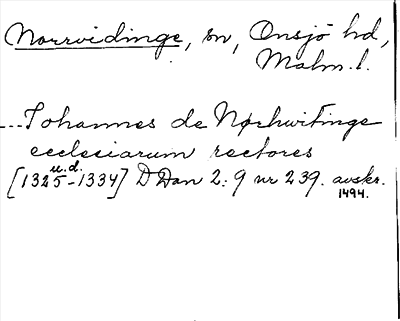 Norrvidinge, sn, Onsjö hd,
Malm. l.
...Johannes de Nørhwitinge
ecclesiarum rectores
u.d.
[1325-1334] D Dan 2:9 nr 239. avskr.
1494.